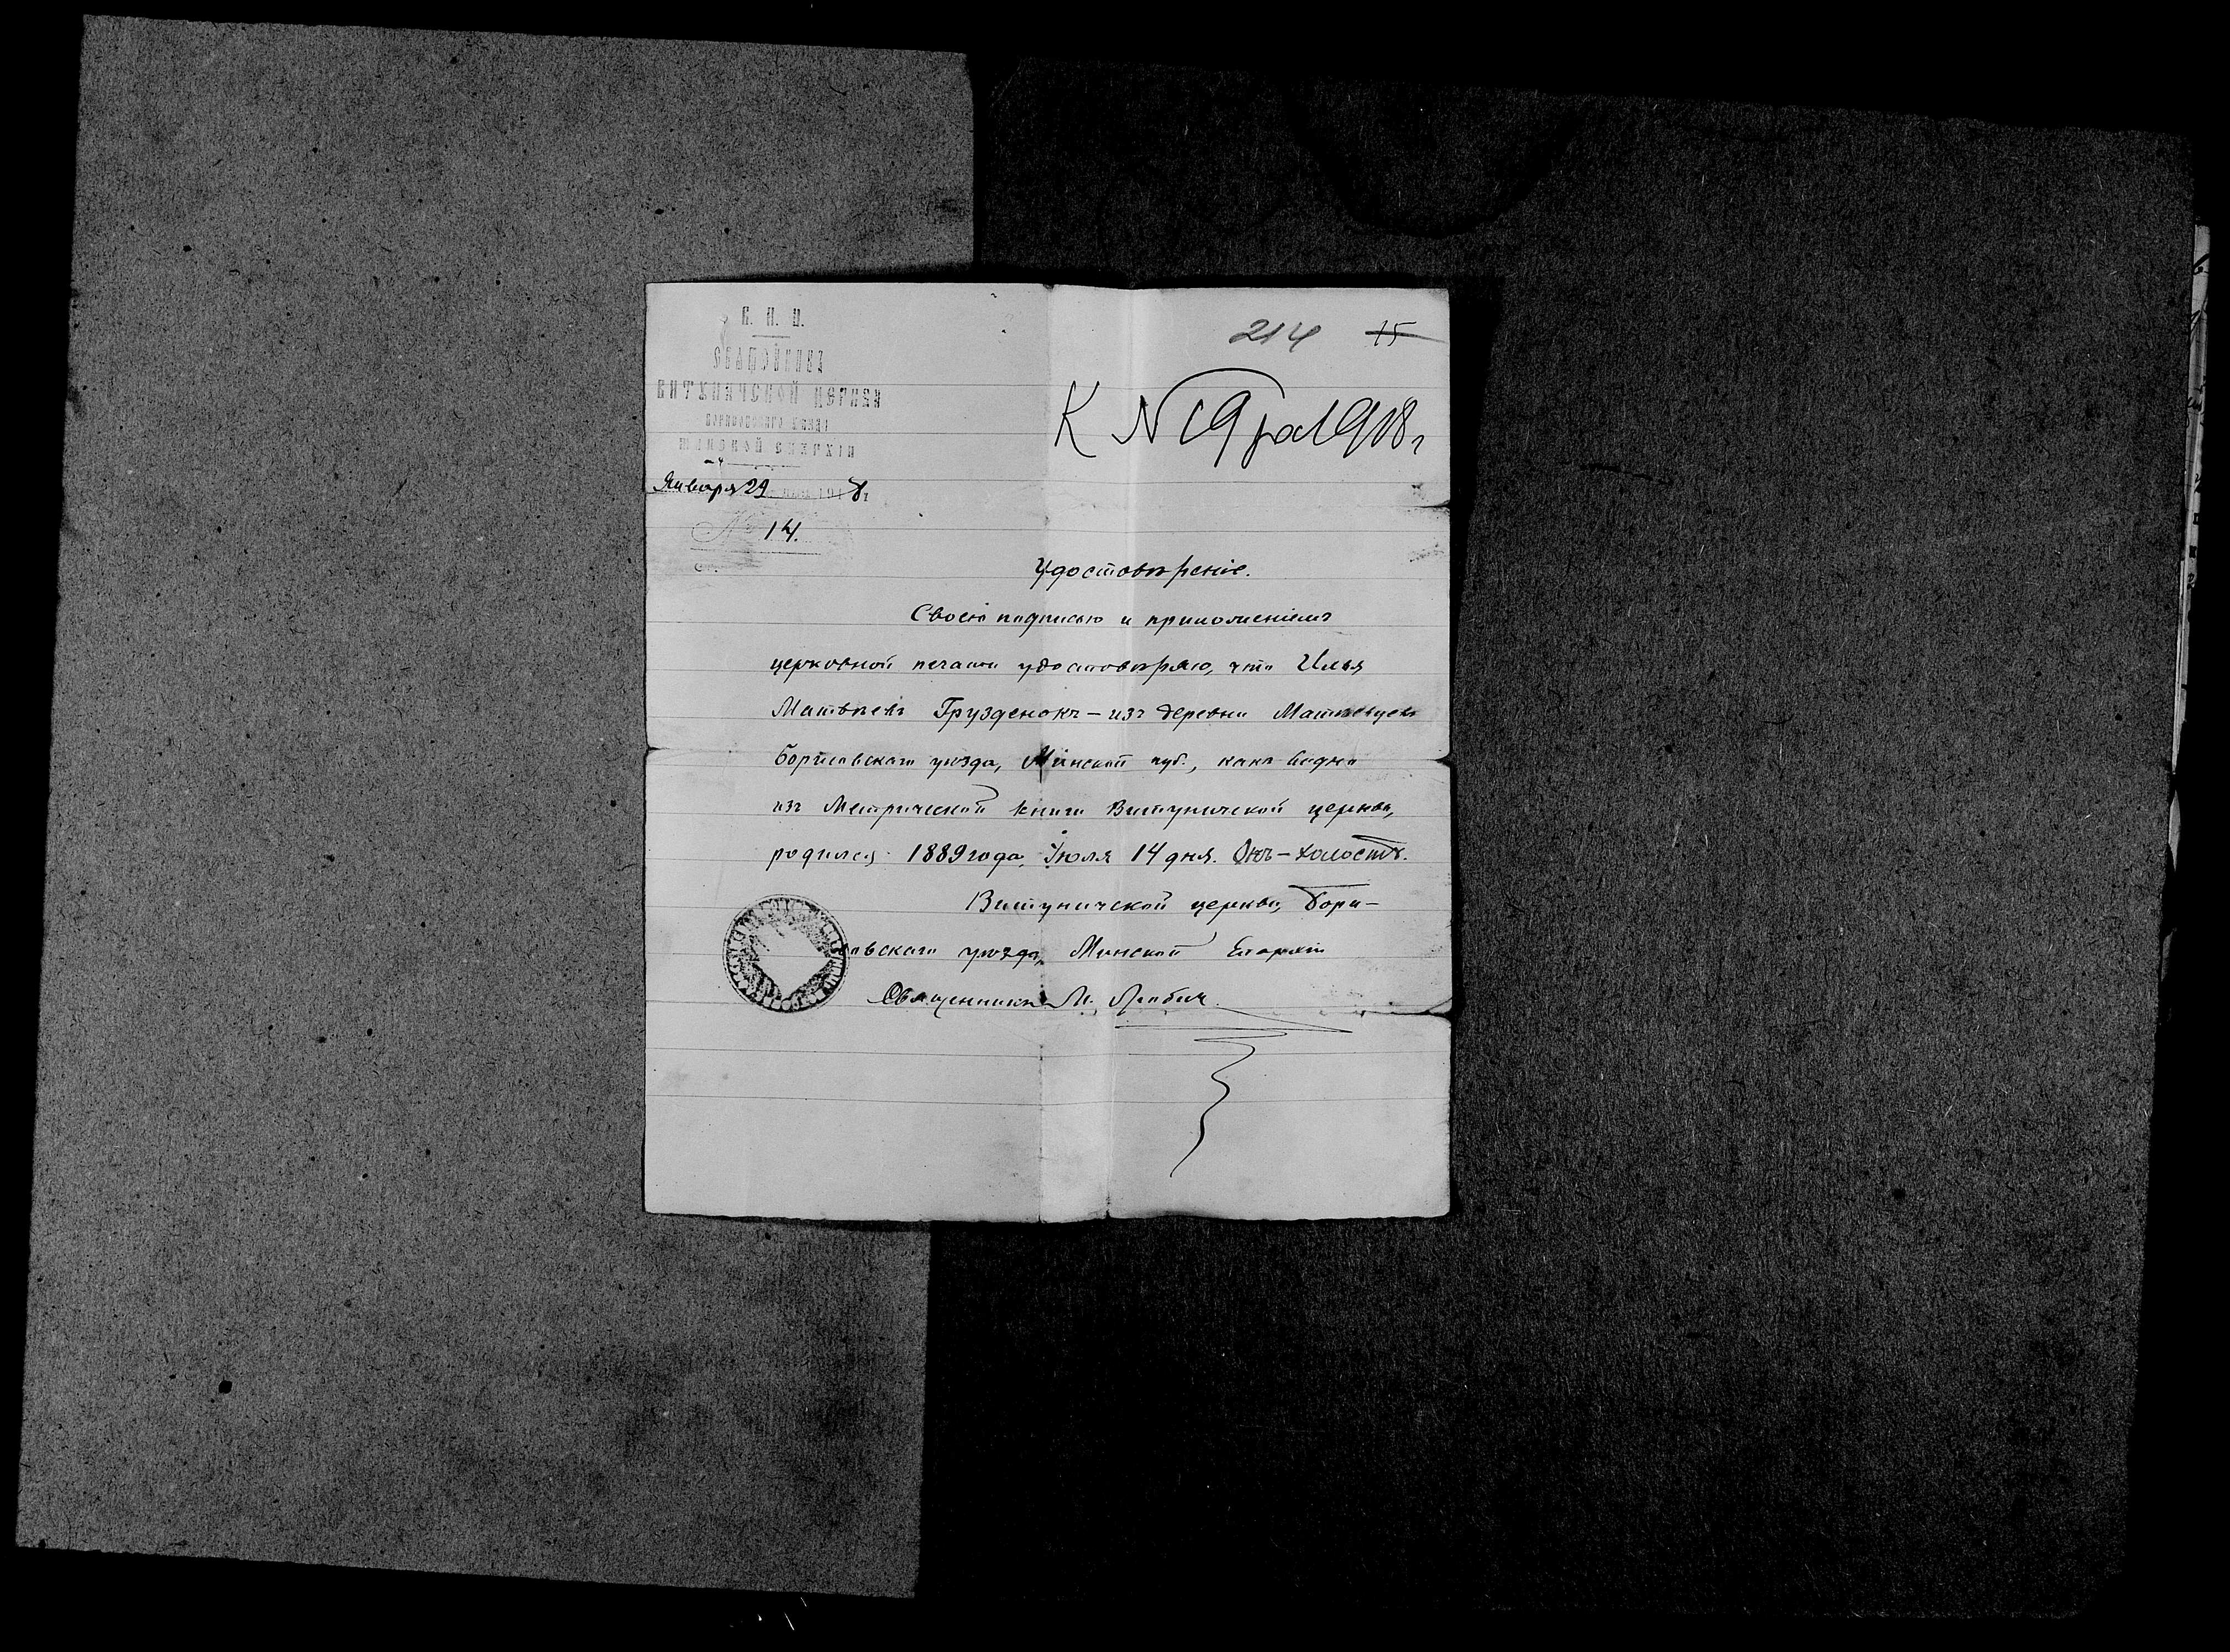 В. П. И.
СВЯЩЕННИКЪ
ВИТУНИЧСКОЙ ЦЕРКВИ
БОРИСОВСКАГО УѢЗДА
МИНСКОЙ ЕПАРХІИ
Января 29 191 8 г.
№ 14.
214 15
К № 19 1918 г
Удостовѣреніе.
Своею подписью и приложеніемъ
церковной печати удостовѣряю, что Илья
Матвѣевъ Грузденокъ – изъ деревни
Борисовскаго уѣзда, Минской губ., какъ видно
изъ Метрической книги Витуничской церкви,
родился 1889 года, Іюля 14 дня. Онъ – холостъ.
Витуничской церкви, Бори-
совскаго уѣзда, Минской Епархіи
Священникъ